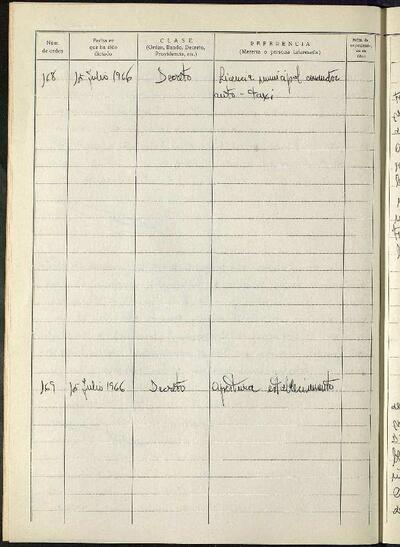 Núm. de orden
Fecha en que ha sido dictado
CLASE
(Orden, Bando, Decreto, Providencia, etc.)
REFERENCIA
(Materia o persona interesada)
168 15 julio 1966 Decreto Licencia municipal conductor
auto-taxi
169 15 julio 1966 Decreto Apertura establecimiento